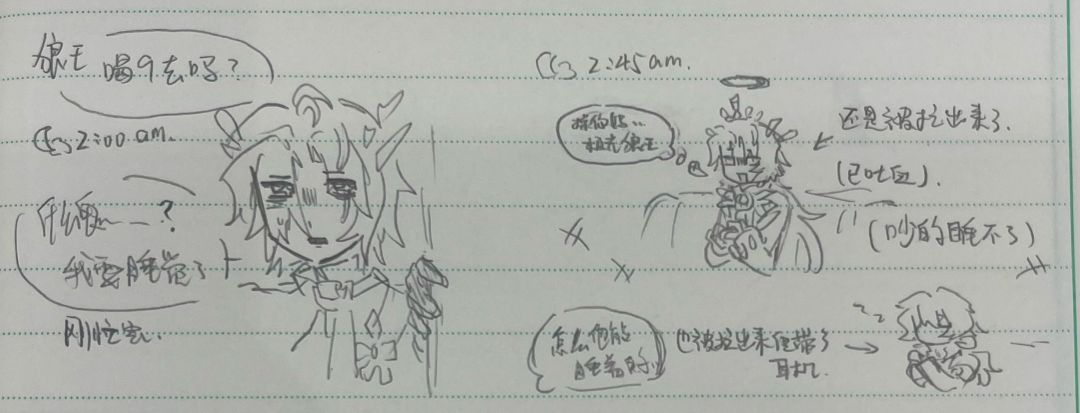 狼王 喝9去吗？
2:00 am.
什么……？
我要睡着了
刚忙完.
2:45 am.
狼王
还是被拉出来了.
(已吐血).
(吵的睡不了)
怎么他能
睡着啊
也被拉出来但带了
耳机.